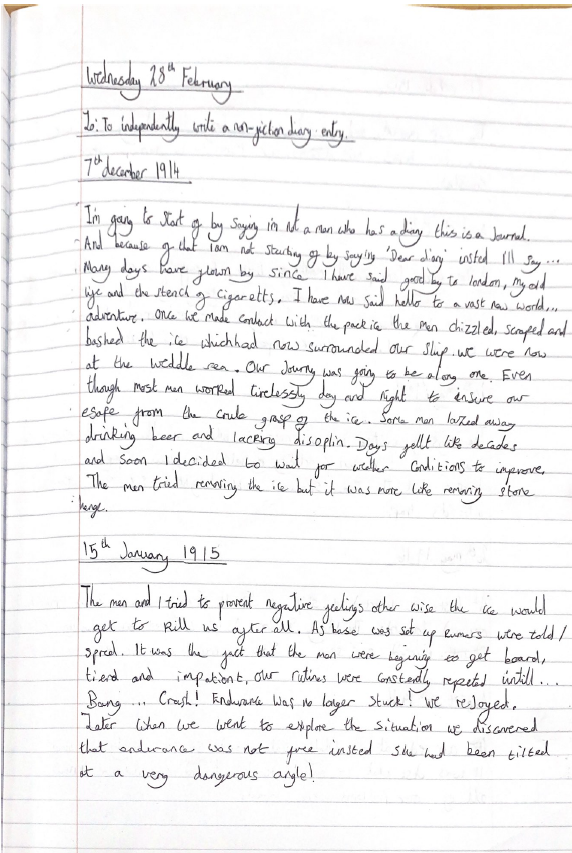 Wednesday 28th February
Lo: To independently write a non-fiction diary entry.
7th december 1914
I'm going to start of by saying im not a man who has a diary this is a Journal.
And because of that I am not starting of by saying 'Dear diary insted I'll say...
Many days have flown by since I have said good by to london, my old
life and the stench of cigaretts. I have now said hello to a vast new world...
adventure. Once we made contact with the pack ice the men chizzled, scraped and
bashed the ice which had now surrounded our ship. we were now
at the weddle sea. Our Journy was going to be a long one. Even
though most men worked tirelessly day and night to insure our
esape from the crule grasp of the ice. Some men lazed away
drinking beer and lacking disoplin. Days fellt like decades
and soon I decided to wait for weather conditions to improve.
The men tried removing the ice but it was more like removing stone
henge.
15th January 1915
The men and I tried to prevent negative feelings other wise the ice would
get to kill us after all. As base was set up rumers were told/
spred. It was the fact that the men were begining to get board,
tierd and impationt, our rutines were constedly repeted intill...
Bang... Crash! Endurance was no longer stuck! we rejoyed.
Later when we went to explore the situation we discovered
that endurance was not free insted she had been tilted
at a very dangerous angle!